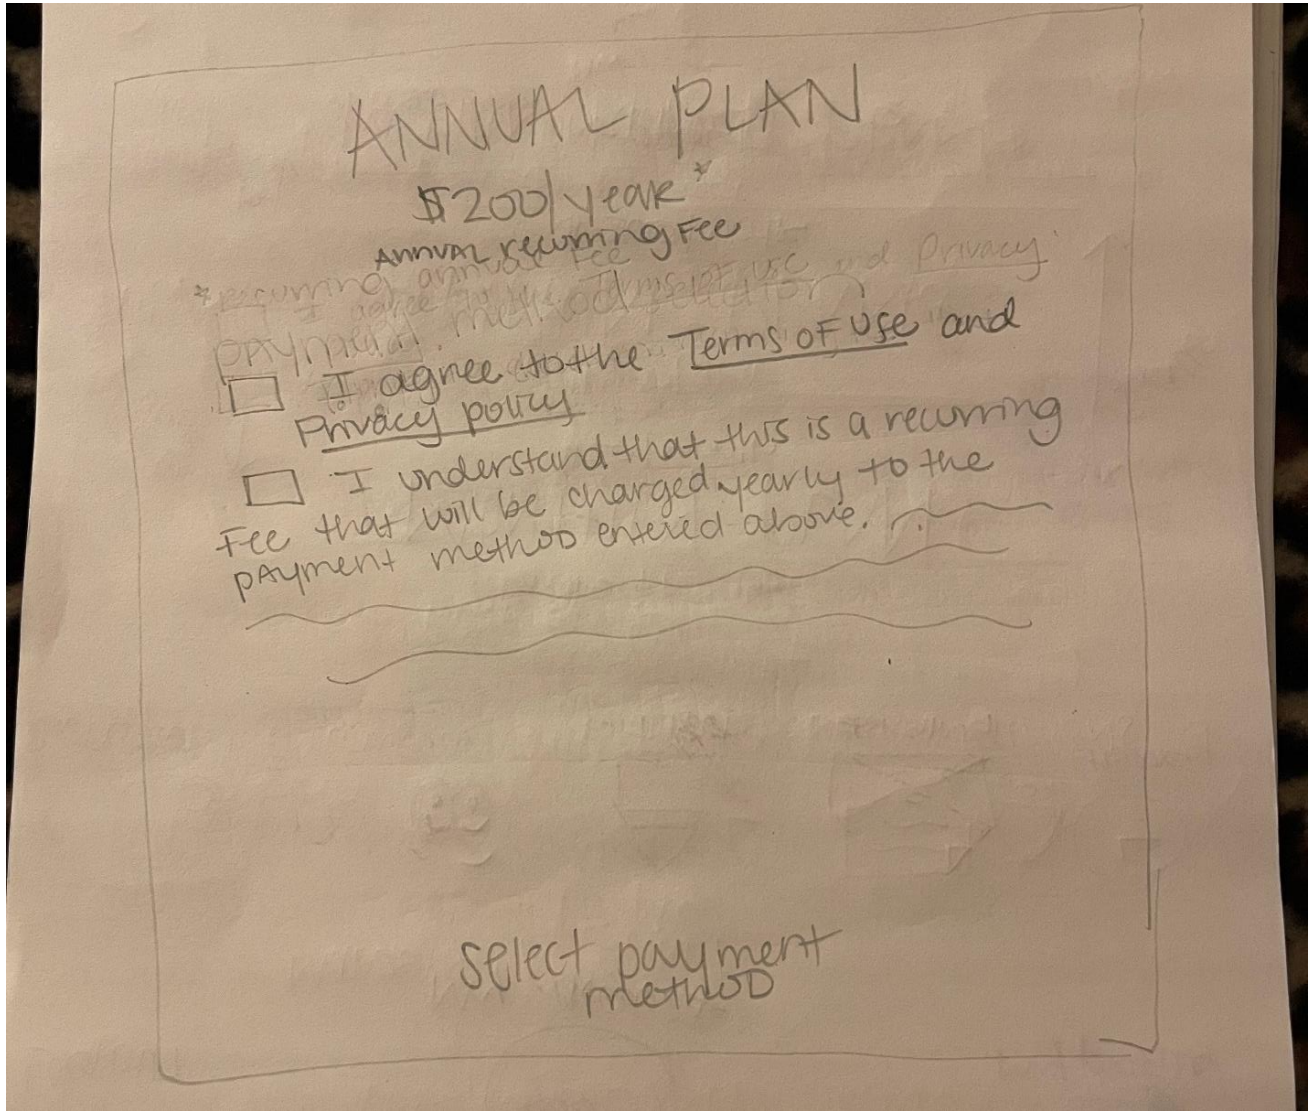 ANNUAL PLAN
$200/year*
ANNUAL recurring Fee
*Recurring annual Fee
I agree to the Terms of use and Privacy
payment method
I agree to the Terms of Use and
Privacy policy
I understand that this is a recurring
Fee that will be charged yearly to the
payment method entered above.
select payment
method